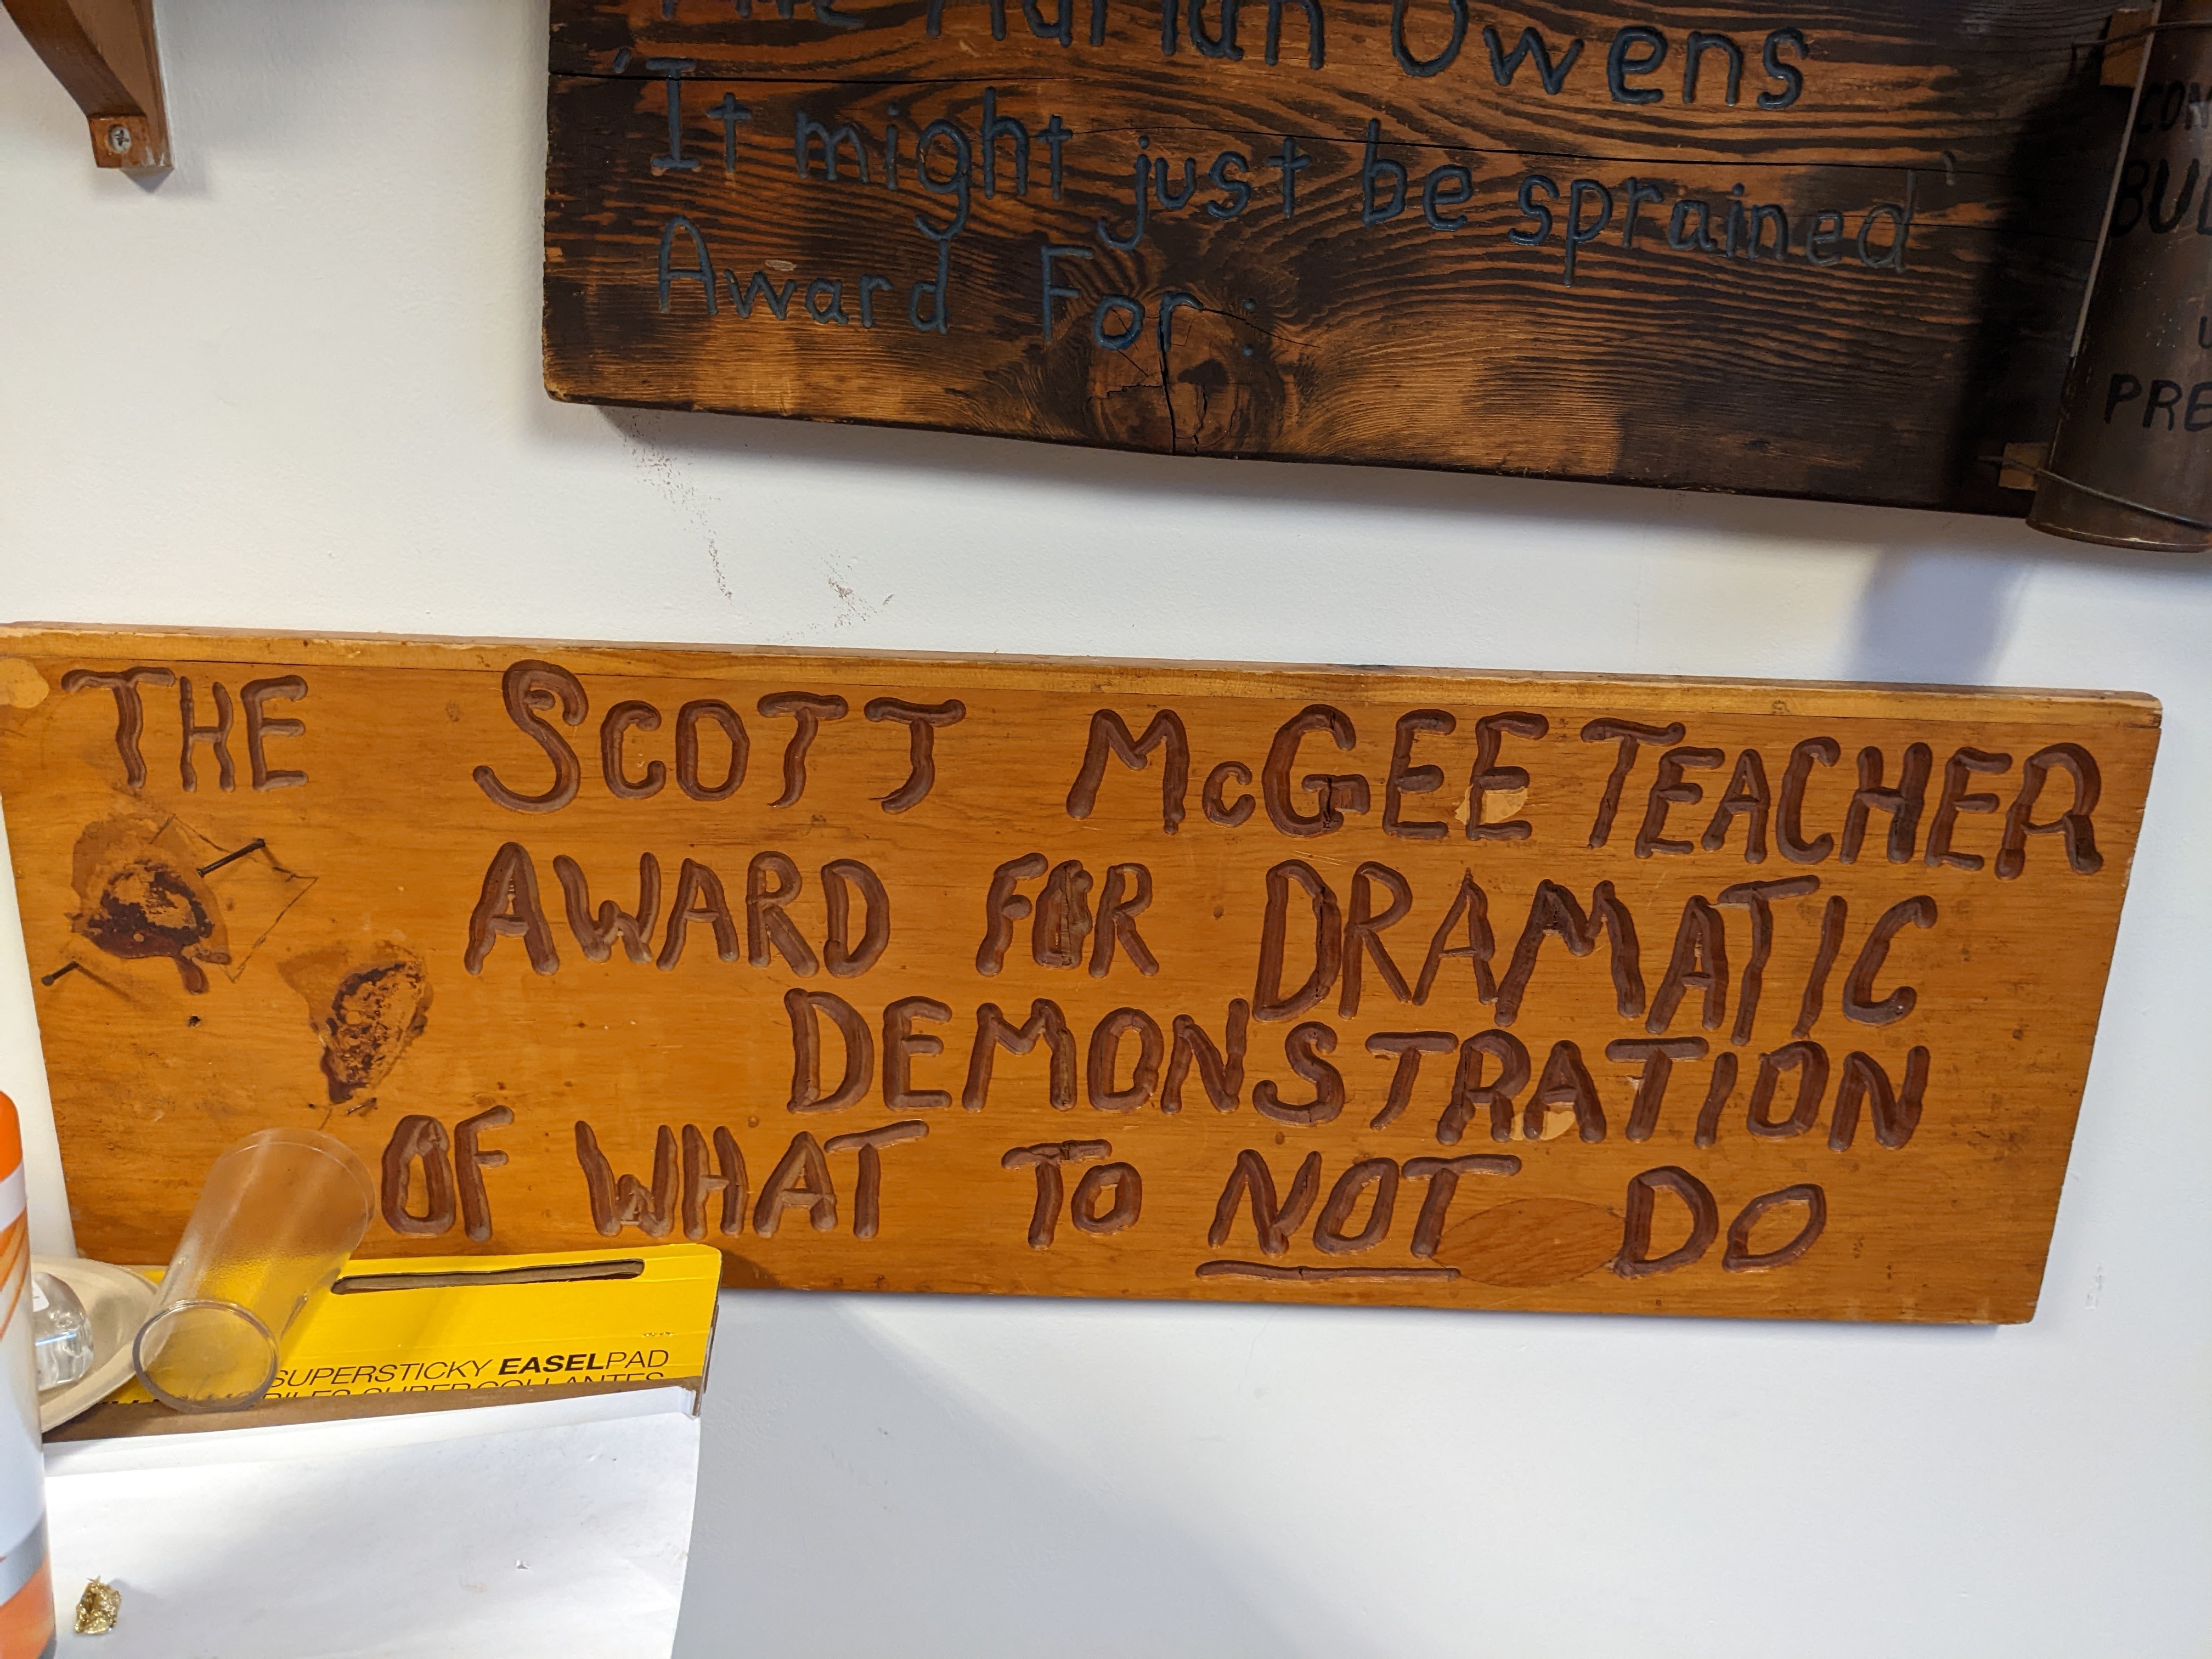 The Adrian Owens
'It might just be sprained'
Award For:
CON
BUL
PRE
THE SCOTT McGEE TEACHER
AWARD FOR DRAMATIC
DEMONSTRATION
OF WHAT TO NOT DO
SUPERSTICKY EASELPAD